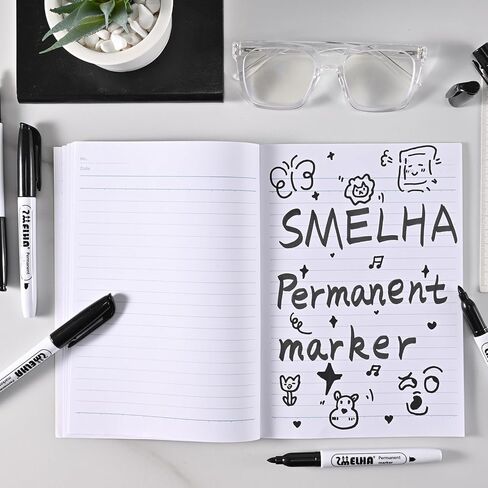 No.
Date
SMELHA
Permanent
marker
SMELHA
Permanent
SMELHA
SMELHA
SMELHA
Permanent
marker